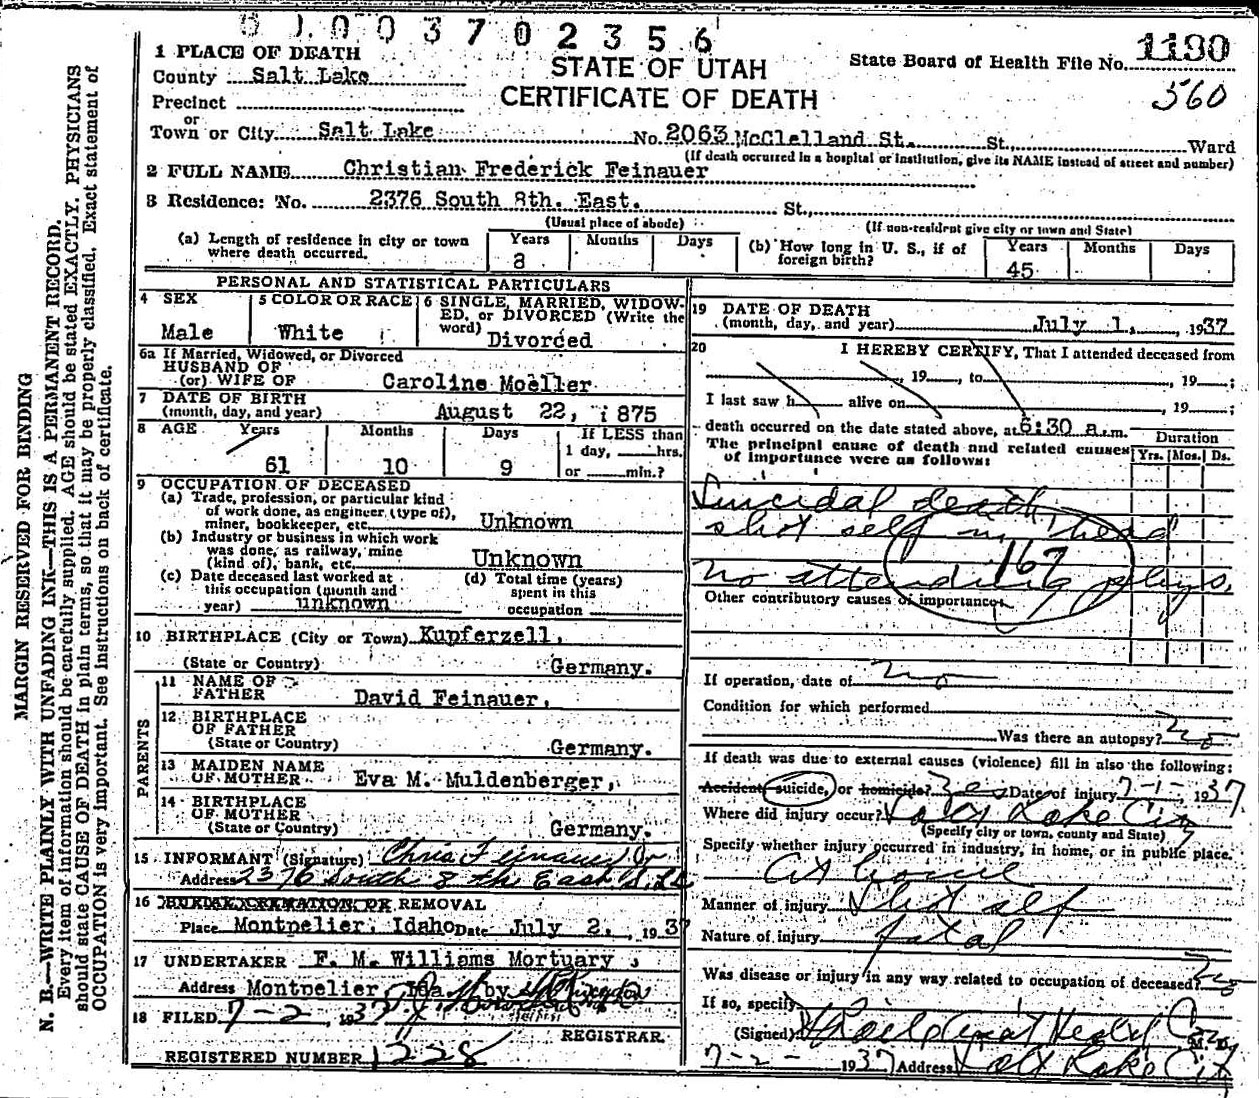 0 1 0 0 3 7 0 2 3 5 6
1190
560
1 PLACE OF DEATH
STATE OF UTAH
CERTIFICATE OF DEATH
State Board of Health File No.
County Salt Lake
Precinct
or
Town or City Salt Lake No. 2063 McClelland St. St., Ward
(If death occurred in a hospital or institution, give its NAME instead of street and number)
2 FULL NAME Christian Frederick Feinauer
3 Residence: No. 2376 South 8th. East. St.,
(Usual place of abode) (If non-resident give city or town and State)
(a) Length of residence in city or town where death occurred. Years 8 Months Days
(b) How long in U. S., if of foreign birth? Years 45 Months Days
PERSONAL AND STATISTICAL PARTICULARS
4 SEX Male
5 COLOR OR RACE White
6 SINGLE, MARRIED, WIDOW-
ED, or DIVORCED (Write the
word) Divorced
6a If Married, Widowed, or Divorced
HUSBAND OF
(or) WIFE OF Caroline Moeller
7 DATE OF BIRTH
(month, day, and year) August 22, 1875
8 AGE Years 61 Months 10 Days 9
If LESS than
1 day, hrs.
or min.?
9 OCCUPATION OF DECEASED
(a) Trade, profession, or particular kind
of work done, as engineer, (type of),
miner, bookkeeper, etc. Unknown
(b) Industry or business in which work
was done, as railway, mine
(kind of), bank, etc. Unknown
(c) Date deceased last worked at
this occupation (month and
year) unknown
(d) Total time (years)
spent in this
occupation
10 BIRTHPLACE (City or Town) Kupferzell,
(State or Country) Germany.
PARENTS
11 NAME OF
FATHER David Feinauer,
12 BIRTHPLACE
OF FATHER
(State or Country) Germany.
13 MAIDEN NAME
OF MOTHER Eva M. Muldenberger,
14 BIRTHPLACE
OF MOTHER
(State or Country) Germany.
15 INFORMANT (Signature) Chris Feinauer Jr
Address 2376 South 8 the East S.L.C
16 BURIAL CREMATION OR REMOVAL
Place Montpelier, Idaho Date July 2, 1937
17 UNDERTAKER F. M. Williams Mortuary,
Address Montpelier, Ida. by
18 FILED 7-2-, 1937
REGISTRAR
REGISTERED NUMBER 1228
19 DATE OF DEATH
(month, day, and year) July 1, 1937
20 I HEREBY CERTIFY, That I attended deceased from
, 19 , to , 19 ;
I last saw h alive on , 19 ;
death occurred on the date stated above, at 6:30 a.m.
The principal cause of death and related causes
of importance were as follows:
Duration
Yrs. Mos. Ds.
Suicidal death,
shot self in head
167
No attending phys.
Other contributory causes of importance:
If operation, date of no
Condition for which performed
Was there an autopsy? no
If death was due to external causes (violence) fill in also the following:
Accident, suicide, or homicide? Yes Date of injury 7-1-, 1937.
Where did injury occur? Salt Lake City
(Specify city or town, county and State)
Specify whether injury occurred in industry, in home, or in public place.
At home
Manner of injury Shot self
Nature of injury fatal
Was disease or injury in any way related to occupation of deceased? no
If so, specify
(Signed) Health M. D.
7-2- 1937 Address Salt Lake City
MARGIN RESERVED FOR BINDING
N. B.—WRITE PLAINLY WITH UNFADING INK—THIS IS A PERMANENT RECORD.
Every item of information should be carefully supplied. AGE should be stated EXACTLY. PHYSICIANS
should state CAUSE OF DEATH in plain terms, so that it may be properly classified. Exact statement of
OCCUPATION is very important. See instructions on back of certificate.